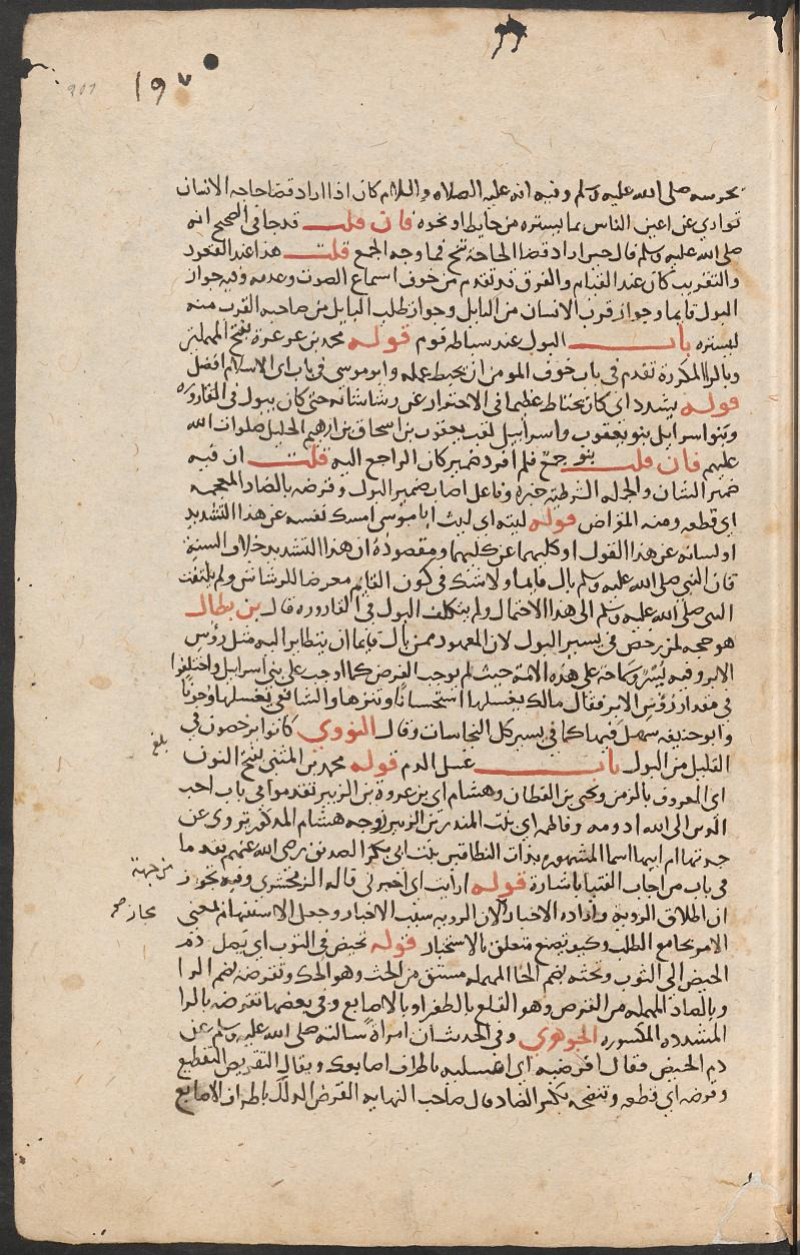 ١٩٧
يحرسه صلى الله عليه وسلم وفيه انه عليه الصلاه والسلام كان اذا اراد قضا حاجه الانسان
توارى عن اعين الناس بما يستره من حايط او نحوه فان قلت قد جا في الصحيح انه
صلى الله عليه وسلم قال حين اراد قضا الحاجة تنح فما وجه الجمع قلت هذا عند القعود
والتقريب كان عند القيام والفرق قد تقدم من خوف اسماع الصوت وعدمه وفيه جواز
البول قايما وجواز قرب الانسان من البايل وجواز طلب البايل من صاحبه القرب منه
ليستره باب البول عند سباطه قوم قوله محمد بن عرعرة بفتح المهملتين
وبالرا المكررة تقدم في باب خوف المومن ان يحبط عمله وابو موسى في باب اى الاسلام افضل
قوله يشدد اى كان يحتاط عظيما في الاحتراز عن رشاشاته حتى كان يبول في القاروره
وبنو اسرايل بنو يعقوب واسراييل لقب يعقوب بن اسحاق بن ابرهيم الخليل صلوات الله
عليهم فان قلت بنو جمع فلم افرد ضمير كان الراجع اليه قلت ان فيه
ضمير الشان والجمله الشرطيه خبره وفاعل اصاب ضمير البول وقرضه بالضاد المعجمه
اى قطعه ومنه المقراض قوله ليته اى ليت ابا موسى امسك نفسه عن هذا التشديد
او لسانه عن هذا القول او كليهما عن كليهما ومقصوده ان هذا التشديد خلاف السنة
فان النبي صلى الله عليه وسلم بال قايما ولا شك في كون القايم معرضا للرشاش ولم يلتفت
النبى صلى الله عليه وسلم الى هذا الاحتمال ولم يتكلف البول في القاروره قال بن بطال
هو حجه لمن رخص في يسير البول لان المعهود ممن بال قايما ان يتطاير اليه مثل رؤس
الابر وفيه يسر وسماحة على هذه الامة حيث لم يوجب القرض كما اوجب على بنى اسرايل واختلفوا
في مقدار رؤس الابر فقال مالك يغسلها استحسانا وتنزها والشافعي يغسلها وجوبا
وابو حنيفه سهل فيها كما في يسير كل النجاسات وقال النووي كانوا يرخصون في
القليل من البول باب غسل الدم قوله محمد بن المثنى بفتح النون
بلغ
اى المعروف بالزمن ويحيى بن القطان وهشام اى بن عروة بن الزبير تقدموا في باب احب
الدين الى الله ادومه وفاطمه اى بنت المنذر بن الزبير زوجه هشام المذكور تروى عن
جدتها ام ابيها اسما المشهوره بذات النطاقين بنت ابى بكر الصديق رضى الله عنهم تقدما
في باب من اجاب الفتيا باشارة قوله ارايت اى اخبرنى قاله الزمخشرى وفيه تجوز
من جهة
ان اطلاق الروية واراده الاخبار لان الرويه سبب الاخبار وجعل الاستفهام بمعنى
مجاز صح
الامر بجامع الطلب وكيف تصنع متعلق بالاستخبار قوله تحيض في الثوب اى يصل دم
الحيض الى الثوب وتحته بضم الحا المهمله مشتق من الحث وهو الحك وتقرضه بضم الرا
وبالصاد المهمله من القرص وهو القلع بالظفر او بالاصابع وفي بعضها تقرضه بالرا
المشدده المكسوره الجوهري وفي الحديث ان امراة سالته صلى الله عليه وسلم عن
دم الحيض فقال اقرضيه اى اغسليه باطراف اصابعك ويقال التقريص التقطيع
وقرضه اى قطعه وتنضحه بكسر الضاد قال صاحب النهايه القرض الدلك باطراف الاصابع